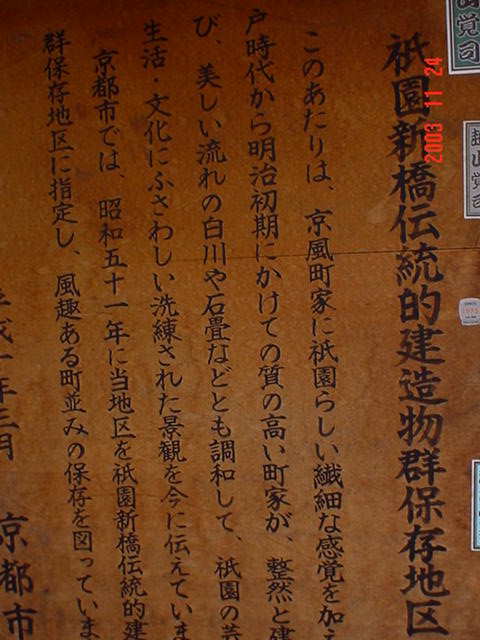 祇園新橋伝統的建造物群保存地区
このあたりは、京風町家に祇園らしい繊細な感覚を加え
戸時代から明治初期にかけての質の高い町家が、整然と建
び、美しい流れの白川や石畳などとも調和して、祇園の芸
生活・文化にふさわしい洗練された景観を今に伝えていま
京都市では、昭和五十一年に当地区を祇園新橋伝統的建
群保存地区に指定し、風趣ある町並みの保存を図っていま
年三月
京都市
2003 11 24